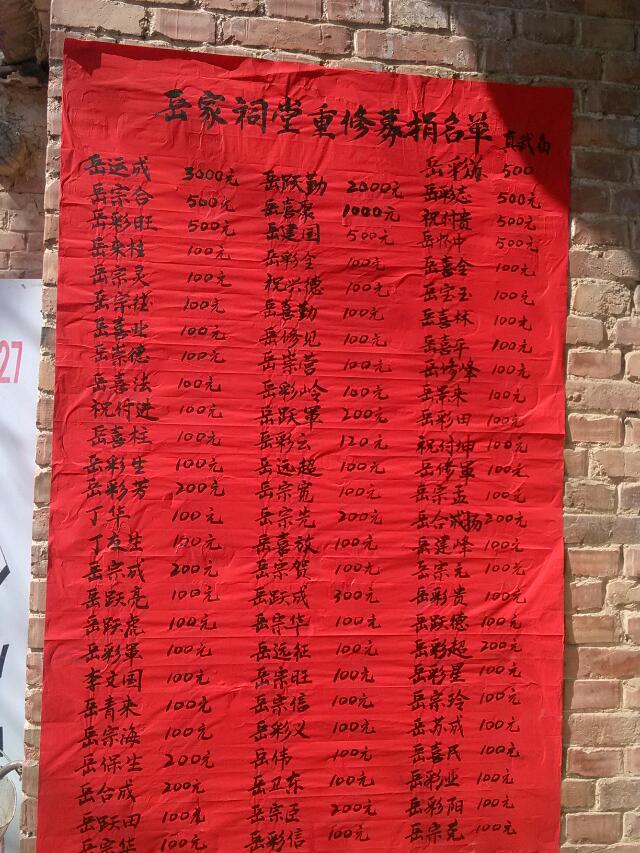 岳家祠堂重修募捐名单
真武局
岳远成 3000元
岳宗合 500元
岳彩旺 500元
岳来柱 100元
岳宗灵 100元
岳宗 100元
岳喜业 100元
岳宗德 100元
岳喜法 100元
祝付进 100元
岳喜柱 100元
岳彩生 100元
岳彩芳 200元
丁华 100元
丁友生 100元
岳宗成 200元
岳跃亮 100元
岳跃虎 100元
岳彩軍 100元
李文国 100元
岳青来 100元
岳宗海 100元
岳保生 200元
岳合成 200元
岳跃田 100元
岳宗华 100元
岳跃勤 2000元
岳喜聚 1000元
岳建国 500元
岳彩全 100元
祝兴德 100元
岳喜勤 100元
岳修见 100元
岳崇营 100元
岳彩岭 100元
岳跃軍 200元
岳彩云 120元
岳远超 100元
岳宗宽 100元
岳宗先 200元
岳喜放 100元
岳宗贺 100元
岳跃成 300元
岳宗华 100元
岳远征 100元
岳崇旺 100元
岳宗信 100元
岳彩义 100元
岳伟 100元
岳卫东 100元
岳宗臣 200元
岳彩信 100元
岳彩 500
岳彩志 500元
祝付贵 500元
岳怀中 500元
岳喜全 100元
岳宝玉 100元
岳喜林 100元
岳喜平 100元
岳峰 100元
岳景来 100元
岳彩田 100元
祝付坤 100元
岳修軍 100元
岳宗孟 100元
岳合成扬 200元
岳建峰 100元
岳宗元 100元
岳彩贵 100元
岳跃德 100元
岳彩超 200元
岳彩星 100元
岳宗玲 100元
岳苏成 100元
岳喜民 100元
岳彩业 100元
岳彩阳 100元
岳宗克 100元
27